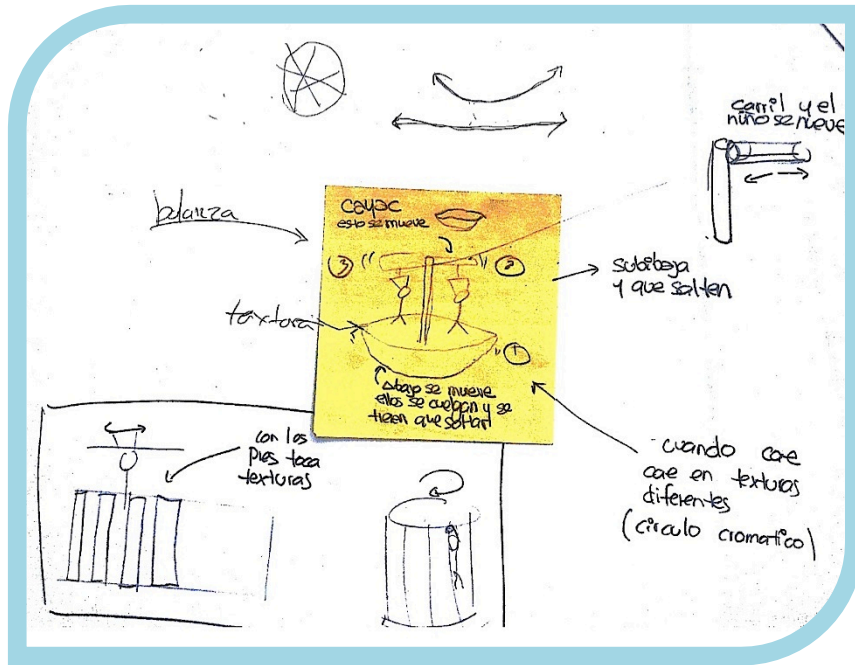 carril y el
niño se mueve
balanza
cayac
esto se mueve
3
2
subibaja
y que salten
textura
1
abajo se mueve
ellos se cuelgan y se
tienen que soltar
con los
pies toca
texturas
cuando cae
cae en texturas
diferentes
(circulo cromatico)